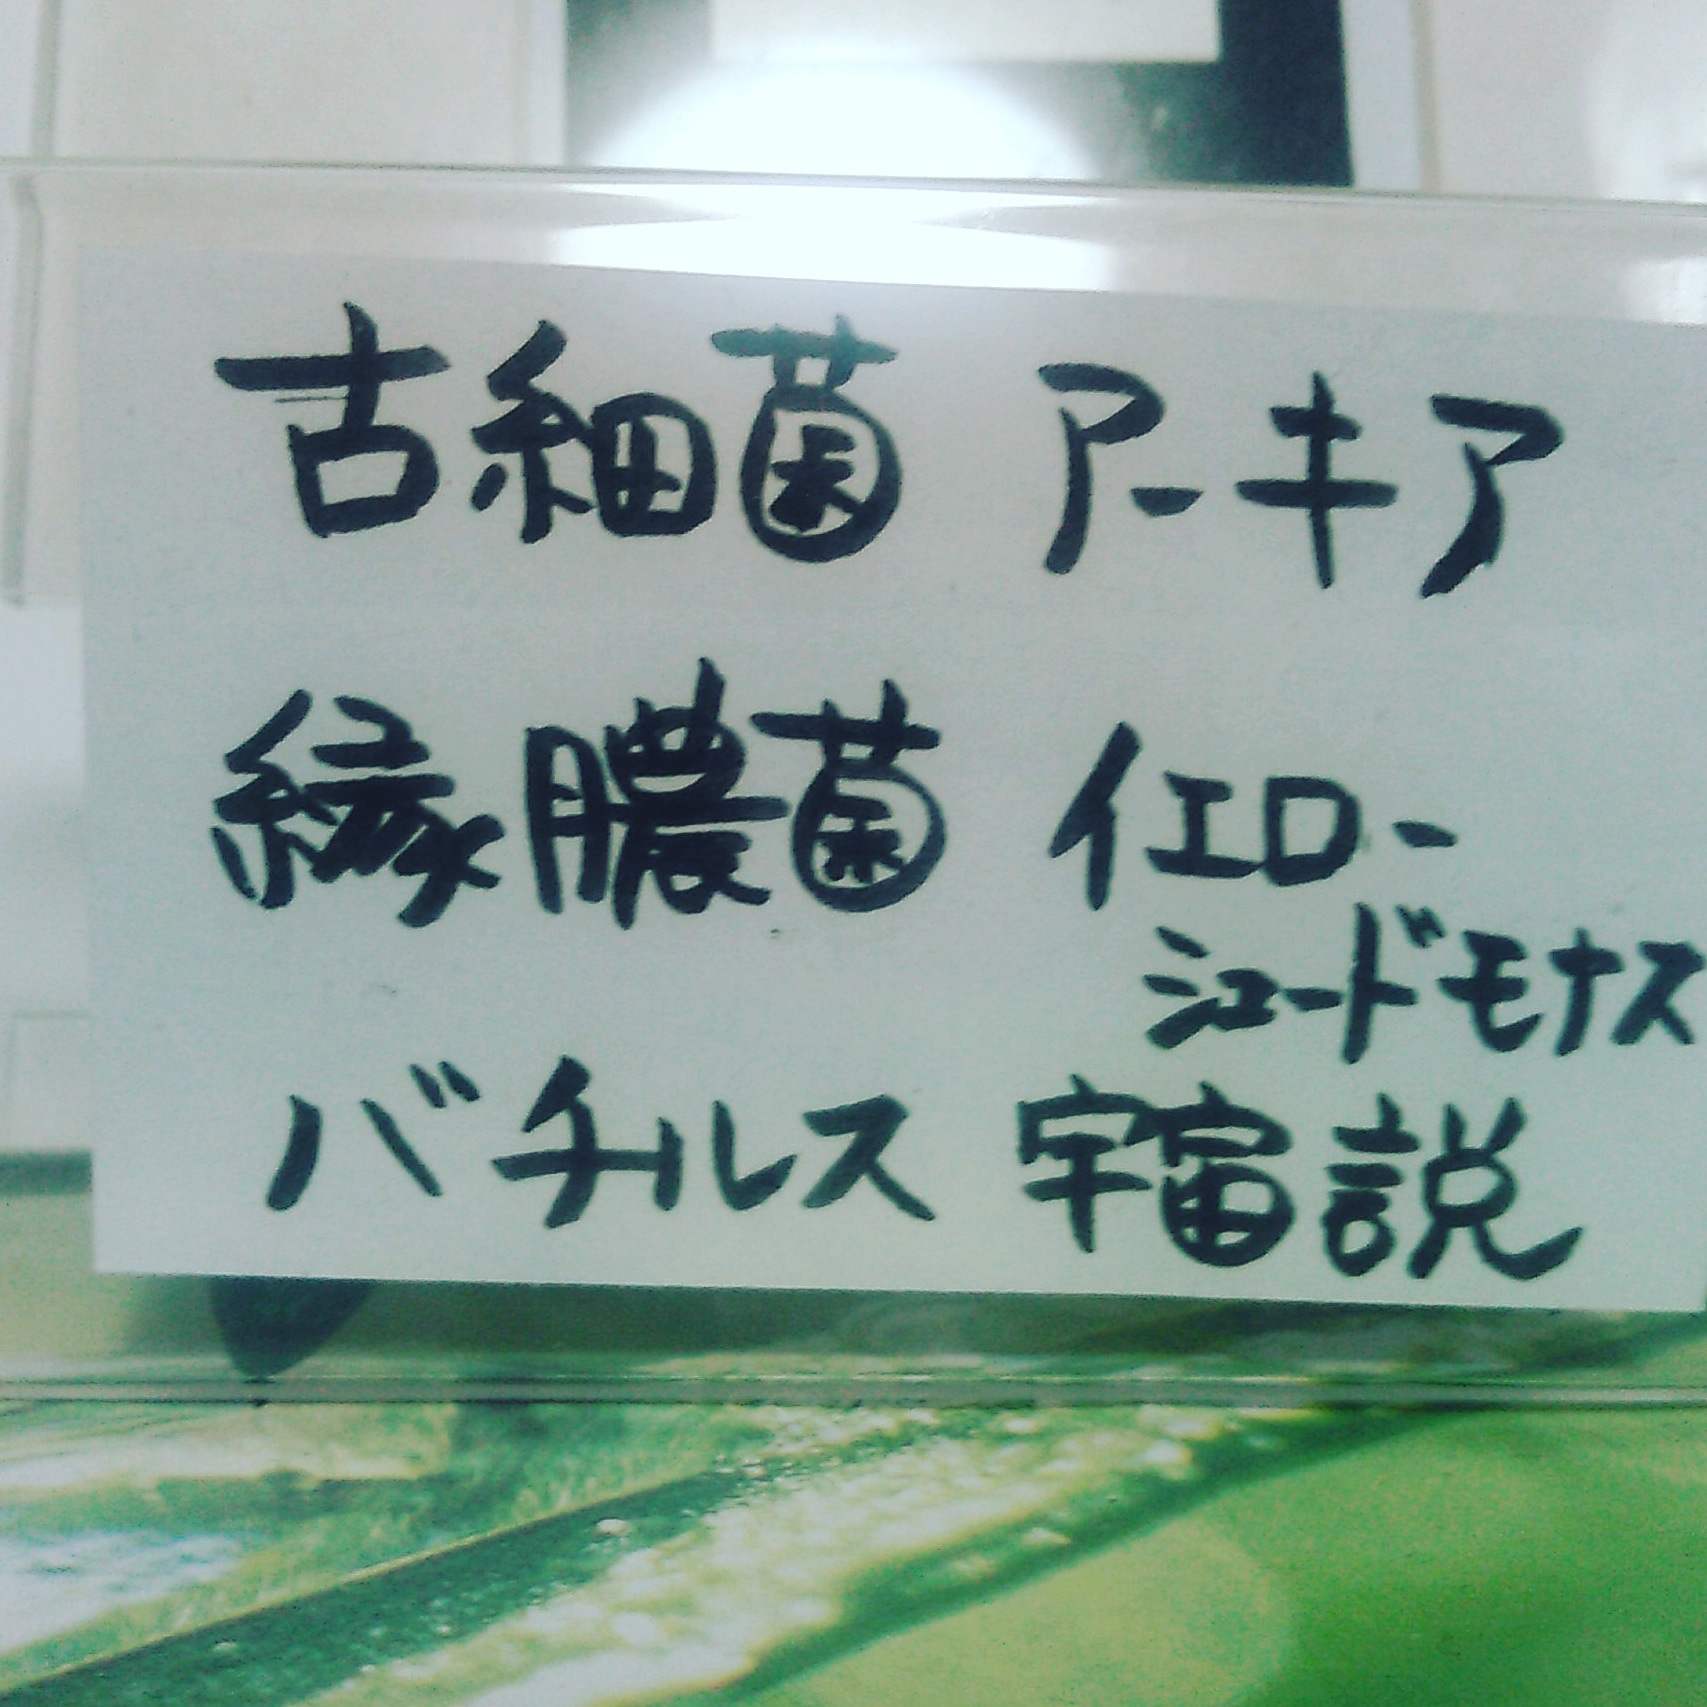 古細菌 アーキア
縁膿菌 イエロー
シュードモナス
バチルス 宇宙説